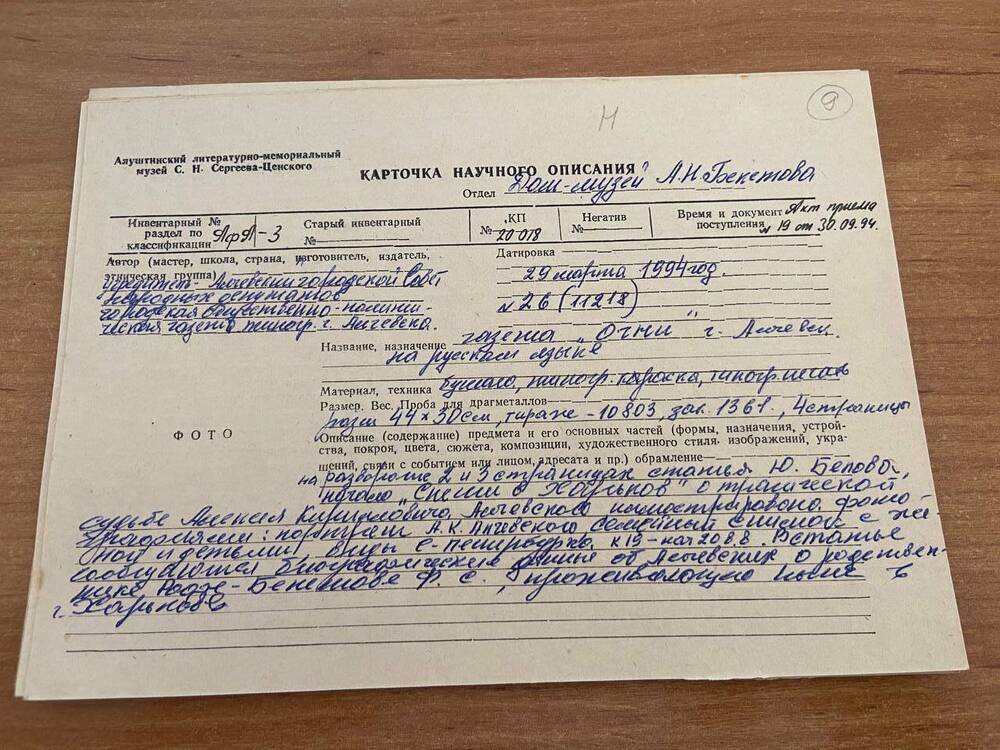 9
Н
Алуштинский литературно-мемориальный
музей С. Н. Сергеева-Ценского
КАРТОЧКА НАУЧНОГО ОПИСАНИЯ
Отдел „Дом-музей" А.Н.Бекетова
Инвентарный №
раздел по
классификации АфА-3
Старый инвентарный
№
КП
№ 20 018
Негатив
№
Время и документ Акт приема
поступления № 19 от 30.09.94.
Автор (мастер, школа, страна, изготовитель, издатель,
этническая группа)
учредитель-Алчевский городской Совет
народных депутатов
городская общественно-полити-
ческая газета типогр. г. Алчевска.
Датировка
29 марта 1994 год
№ 26 (11218)
Название, назначение газета „Огни" г. Алчевск.
на русском языке
Материал, техника бумага, типогр. краска, типогр. печать
Размер. Вес. Проба для драгметаллов
разм 44×30см, тираж -10803, зак. 1361, 4 страницы
ФОТО
Описание (содержание) предмета и его основных частей (формы, назначения, устрой-
ства, покроя, цвета, сюжета, композиции, художественного стиля изображений, укра-
шений, связи с событием или лицом, адресата и пр.) обрамление
на развороте 2 и 3 страницах статья Ю. Белова,
начало „Спеши в Харьков" о трагической
судьбе Алексея Кирилловича Алчевского иллюстрирована фото
графиями: портрет А.К.Алчевского семейный снимок с же-
ной и детьми, виды С-Петербурга к 19 - нач 20 в.в. В статье
сообщаются биографические данные об Алчевских о родствен-
нице Бекетове Ф. С., проживающую ныне в
г. Харькове